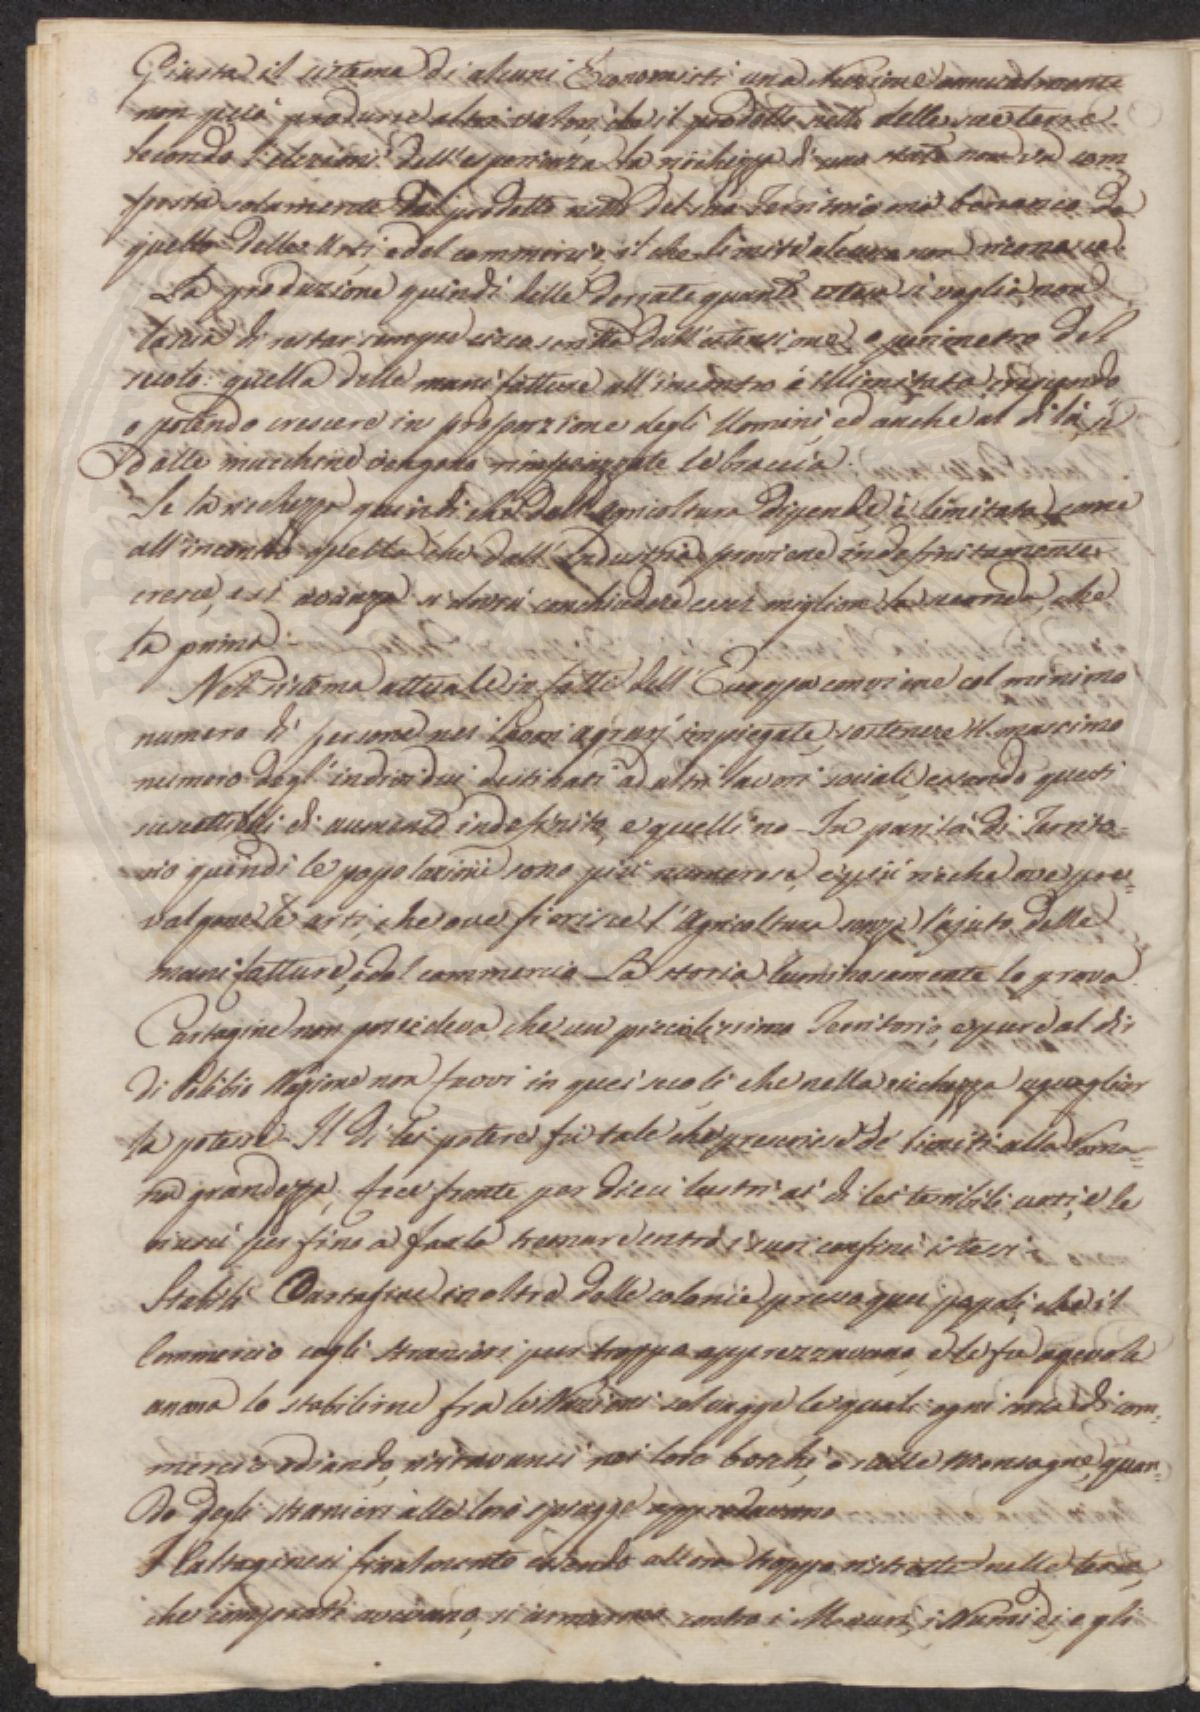 Giusta il sistema di alcuni Economisti una Nazione annualmente
non può produrre altri valori che il prodotto netto delle sue terre
secondo l'elezioni dell'esperienza la richezza di uno stato non va com
posta solamente dal prodotto netto del suo Territorio, ma bonanco da
quello delle Arti, e del commercio, il che limite alcuno non riconosce.
La produzione quindi delle derrate quanto estesa si voglia, non
lascia di restar sempre circoscritta dall'estensione, e perimetro del
suolo: quella delle manifatture all'incontro è illimitata crescendo
o potendo crescere in proporzione degli Uomini, ed anche al di là, se
dalle macchine vengono rimpiazzate le braccia.
Se la richezza quindi che dall'Agricoltura dipende, è limitata, come
all'incontro quella che dall'Industria proviene indefinitamente
cresce, e si avanza si dovrà conchiudere esser migliore la seconda, che
la prima.
Nel sistema attuale in fatti dell'Europa conviene col minimo
numero di persone nei lavori agrarj impiegate, sostenere il massimo
numero degl'individui destinati ad altri lavori sociali, essendo questi
suscettibili di aumento indefinito, e quelli no - In parità di Territo=
rio quindi le popolazioni sono più numerose, e più ricche ove pre=
valgono le arti, che ove fiorisce l'Agricoltura senza l'ajuto delle
manifatture, e del commercio - La storia luminosamente lo prova.
Cartagine non possedeva che un piccolissimo Territorio, e pure al dir
di Polibio Nazione non fuvvi in quei secoli che nella richezza uguagliar
la potesse - Il di lei potere fu tale che prescrisse de' limiti alla Roma=
na grandezza, fece fronte per dieci lustri ai di lei terribili urti, e le
riuscì per fino a farla tremare entro i suoi confini istessi.
Stabilì Cartagine inoltre delle colonie presso quei popoli, che il
Commercio cogli stranieri pur troppo apprezzavano, e le fu agevole
ancora lo stabilirne fra le Nazioni selvagge le quali ogni idea di com=
mercio odiando, ritiravansi nei loro boschi, o sulle montagne, quan=
do degli stranieri alle loro spiagge approdavano
I Cartaginesi finalmente essendo allora troppo ristretti nelle terre,
che comprate avevano, si armarono contro i Mauri, i Numidi, e gli